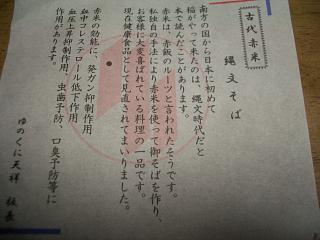 古代赤米
縄文そば
南方の国から日本に初めて
稲がやって来たのは、縄文時代だと
本で読んだことがあります。
赤米は、赤飯のルーツと言われたそうです。
私独自の手法により赤米を使って御そばを作り、
お客様に大変喜ばれている料理の一品です。
現在健康食品として見直されてまいりました。
赤米の効能に、発ガン抑制作用
血中コレステロール低下作用
血圧上昇抑制作用、虫歯予防、口臭予防等に
作用があります。
ゆのくに天祥 板長